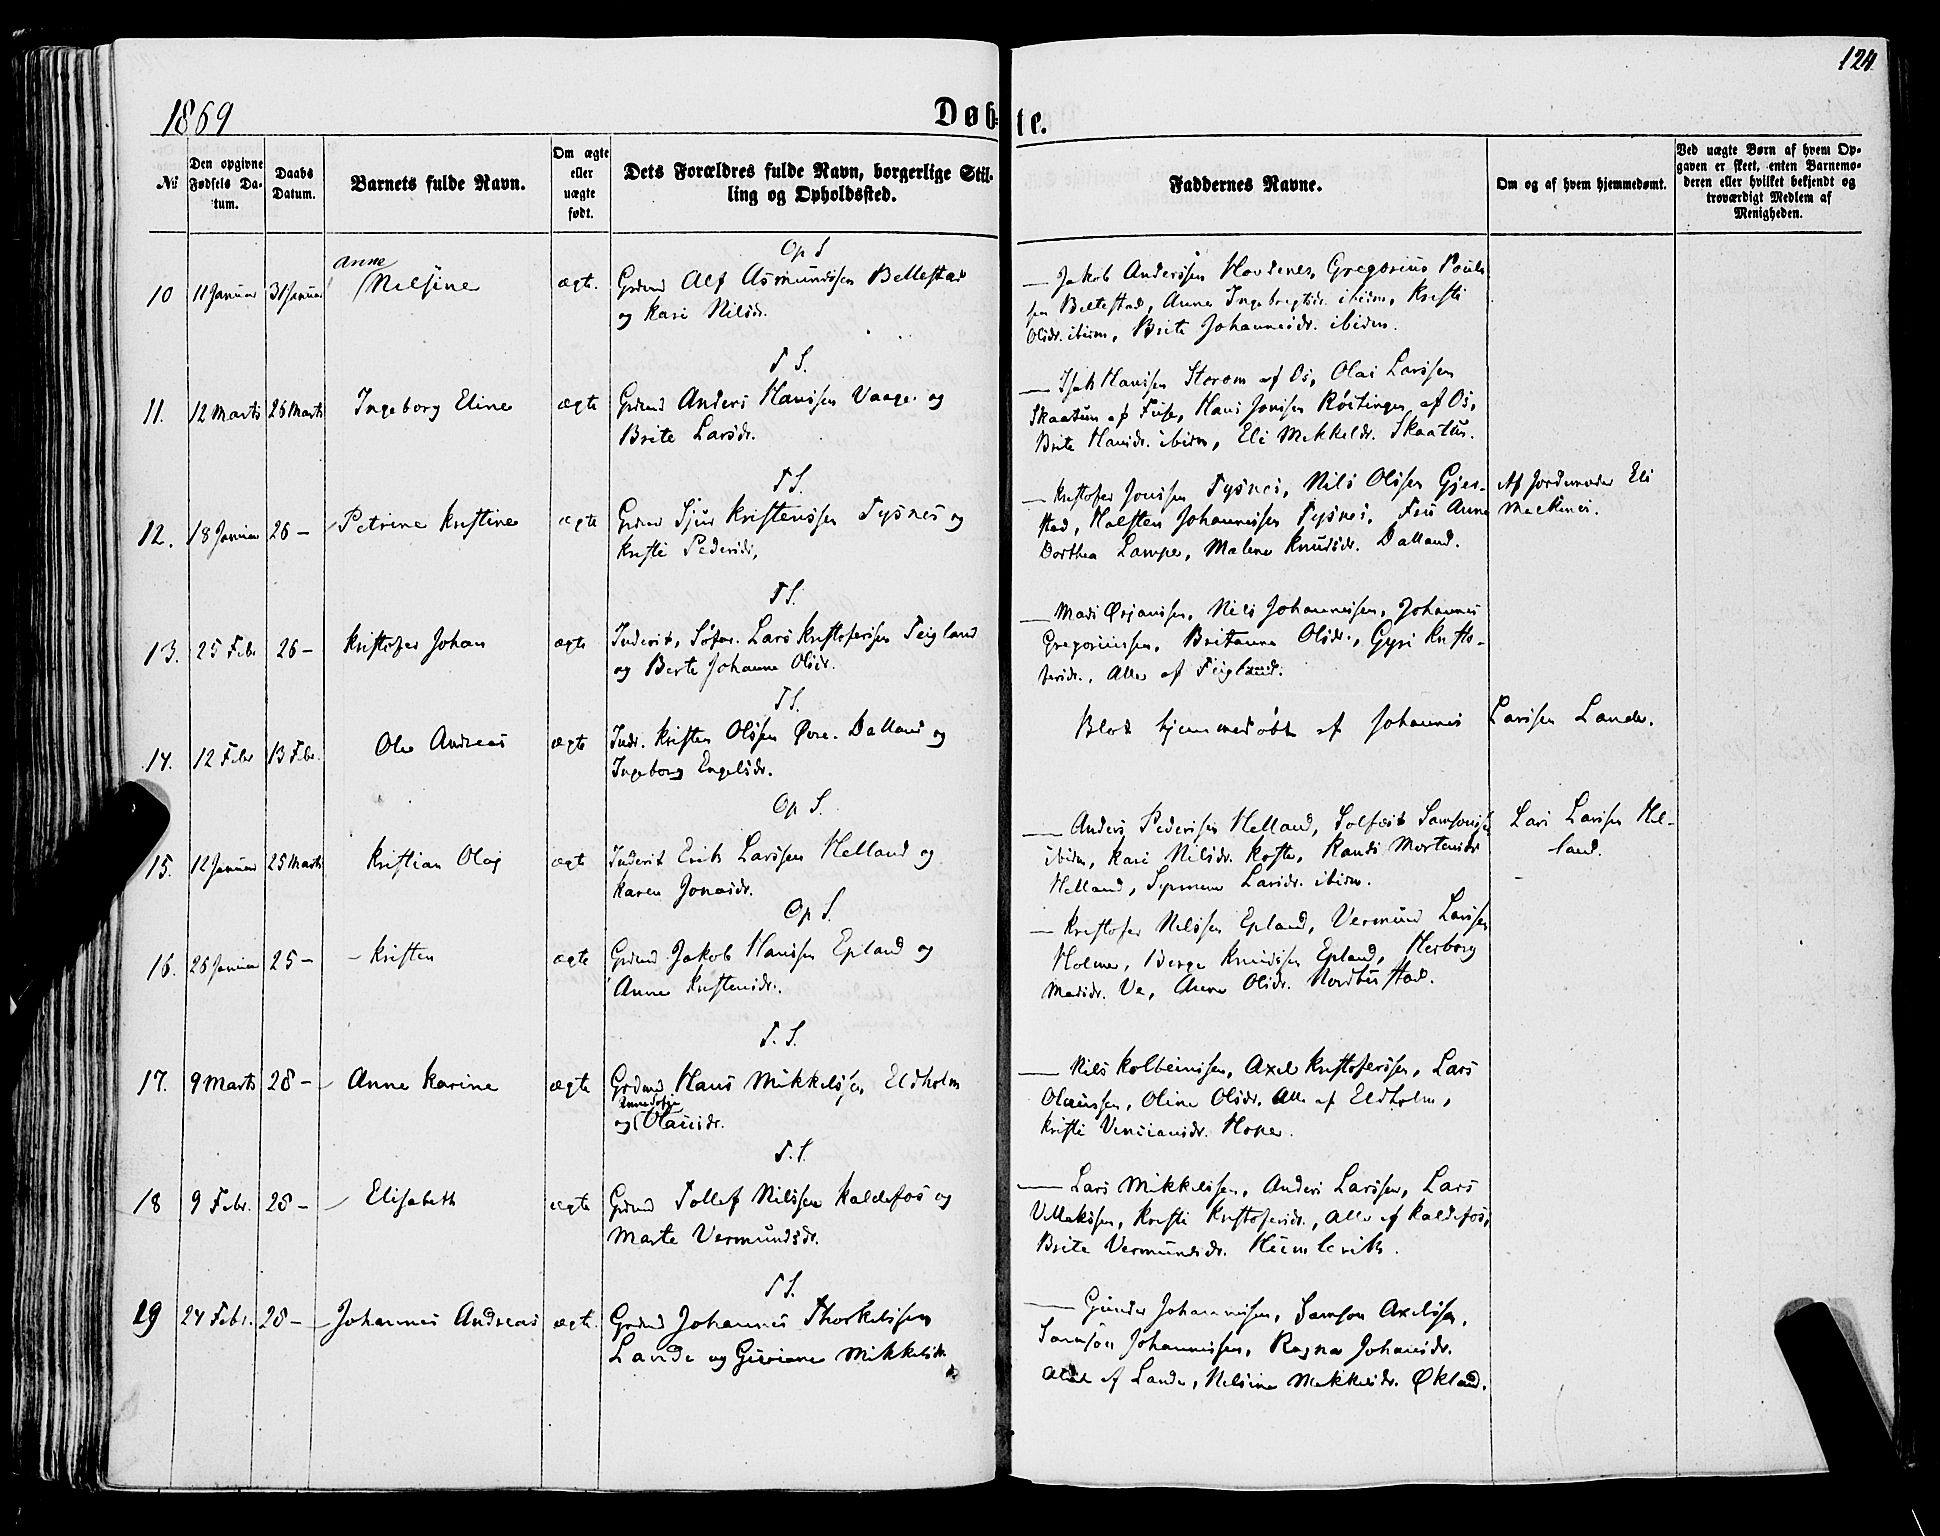 124
1869
Døbte.
No
Den opgivne Fødsels Datum.
Daabs Datum.
Barnets fulde Navn.
Om ægte eller uægte født.
Dets Forældres fulde Navn, borgerlige Stilling og Opholdssted.
Faddernes Navne.
Om og af hvem hjemmedøbt.
Ved uægte Børn af hvem Opgaven er skeet, enten Barnemoderen eller hvilket bekjendt og troværdigt Medlem af Menigheden.
Op S
10 11 Januar 31 Januar Anne Nilsine ægte.
Grdmd Alf Asmundssen Bellestad
og Kari Nilsdr.
— Jakob Anderssen Hovdenes, Gregorius Pouls-
sen Beltestad, Anna Ingebrigtsdr. ibidm, Kristi
Olsdr. ibidm, Brite Johannesdr. ibidm.
T S.
11. 12 Marts 26 Marts Ingeborg Eline ægte
Grdmd Anders Hanssen Vaage og
Brite Larsdr.
— Isak Hanssen Storom af Os, Olai Larssen
Skaatun af Fuse, Hans Jonssen Røttingen af Os,
Brite Hansdr. ibidm, Eli Mikkelsdr. Skaatun.
T S.
12. 18 Januar 26 – Petrine Kristine ægte
Grdmd Sjur Kristenssen Tysnes og
Kristi Pedersdr.
— Kristofer Jonssen Tysnes, Nils Olssen Gjer-
stad, Halsten Johannessen Tysnes, Fru Anne
Dorthea Lampe, Malene Knudsdr. Dalland.
Af Jordemoder Eli
T S.
13. 25 Febr 26 – Kristofer Johan ægte
Inderst, Søfar. Lars Kristoferssen Teigland
og Berte Johanna Olsdr.
— Mads Ørjanssen, Nils Johannessen, Johannes
Gregoriussen, Britanna Olsdr., Gyri Kristo-
fersdr., Alle af Teigland.
T S.
14. 12 Febr 13 Febr. Ole Andreas ægte
Indr. Kristen Olssen Øvre Dalland og
Ingeborg Engelsdr.
Blot hjemmedøbt af Johannes Larssen Lande.
Op S.
15. 12 Januar 25 Marts Kristian Olaj ægte
Inderst Erik Larssen Helland og
Karen Jonasdr.
— Anders Pederssen Helland, Solfest Samsonssen
ibidm, Kari Nilsdr. Koste, Randi Mortensdr
Helland, Synneve Larsdr. ibidm.
Lars Larssen Hel-
land.
Op S.
16. 26 Januar 25 – Kristen ægte
Grdmd Jakob Hanssen Epland og
Anna Kristensdr.
— Kristofer Nilssen Epland, Vermund Larssen
Holme, Berge Knudssen Epland, Herborg
Madsdr. Ve, Anna Olsdr. Nordbustad.
T. S.
17. 9 Marts 28 – Anne Karine ægte
Grdmd Hans Mikkelssen Eldholm
og Olausdr.
— Nils Kolbeinssen, Axel Kristoferssen, Lars
Olaussen, Oline Olsdr. Alle af Eldholm,
Kristi Hope.
T. S.
18 9 Febr. 28 – Elisabeth ægte
Grdmd Tollef Nilssen Kaldefos og
Marte Vermundsdr.
— Lars Mikkelssen, Anders Larssen, Lars
Villakssen, Kristi Kristofersdr., Alle af Kaldefos,
Brite Vermundsdr.
T S.
19 24 Febr. 28 – Johannes Andreas ægte.
Grdmd Johannes Thorkelssen
Lande og Guriane Mikkelsdr
— Gunder Johannessen, Samson Axelssen,
Samson Johannessen, Ragna Johansdr.
Alle af Lande, Nilsine Mikkelsdr. Økland.